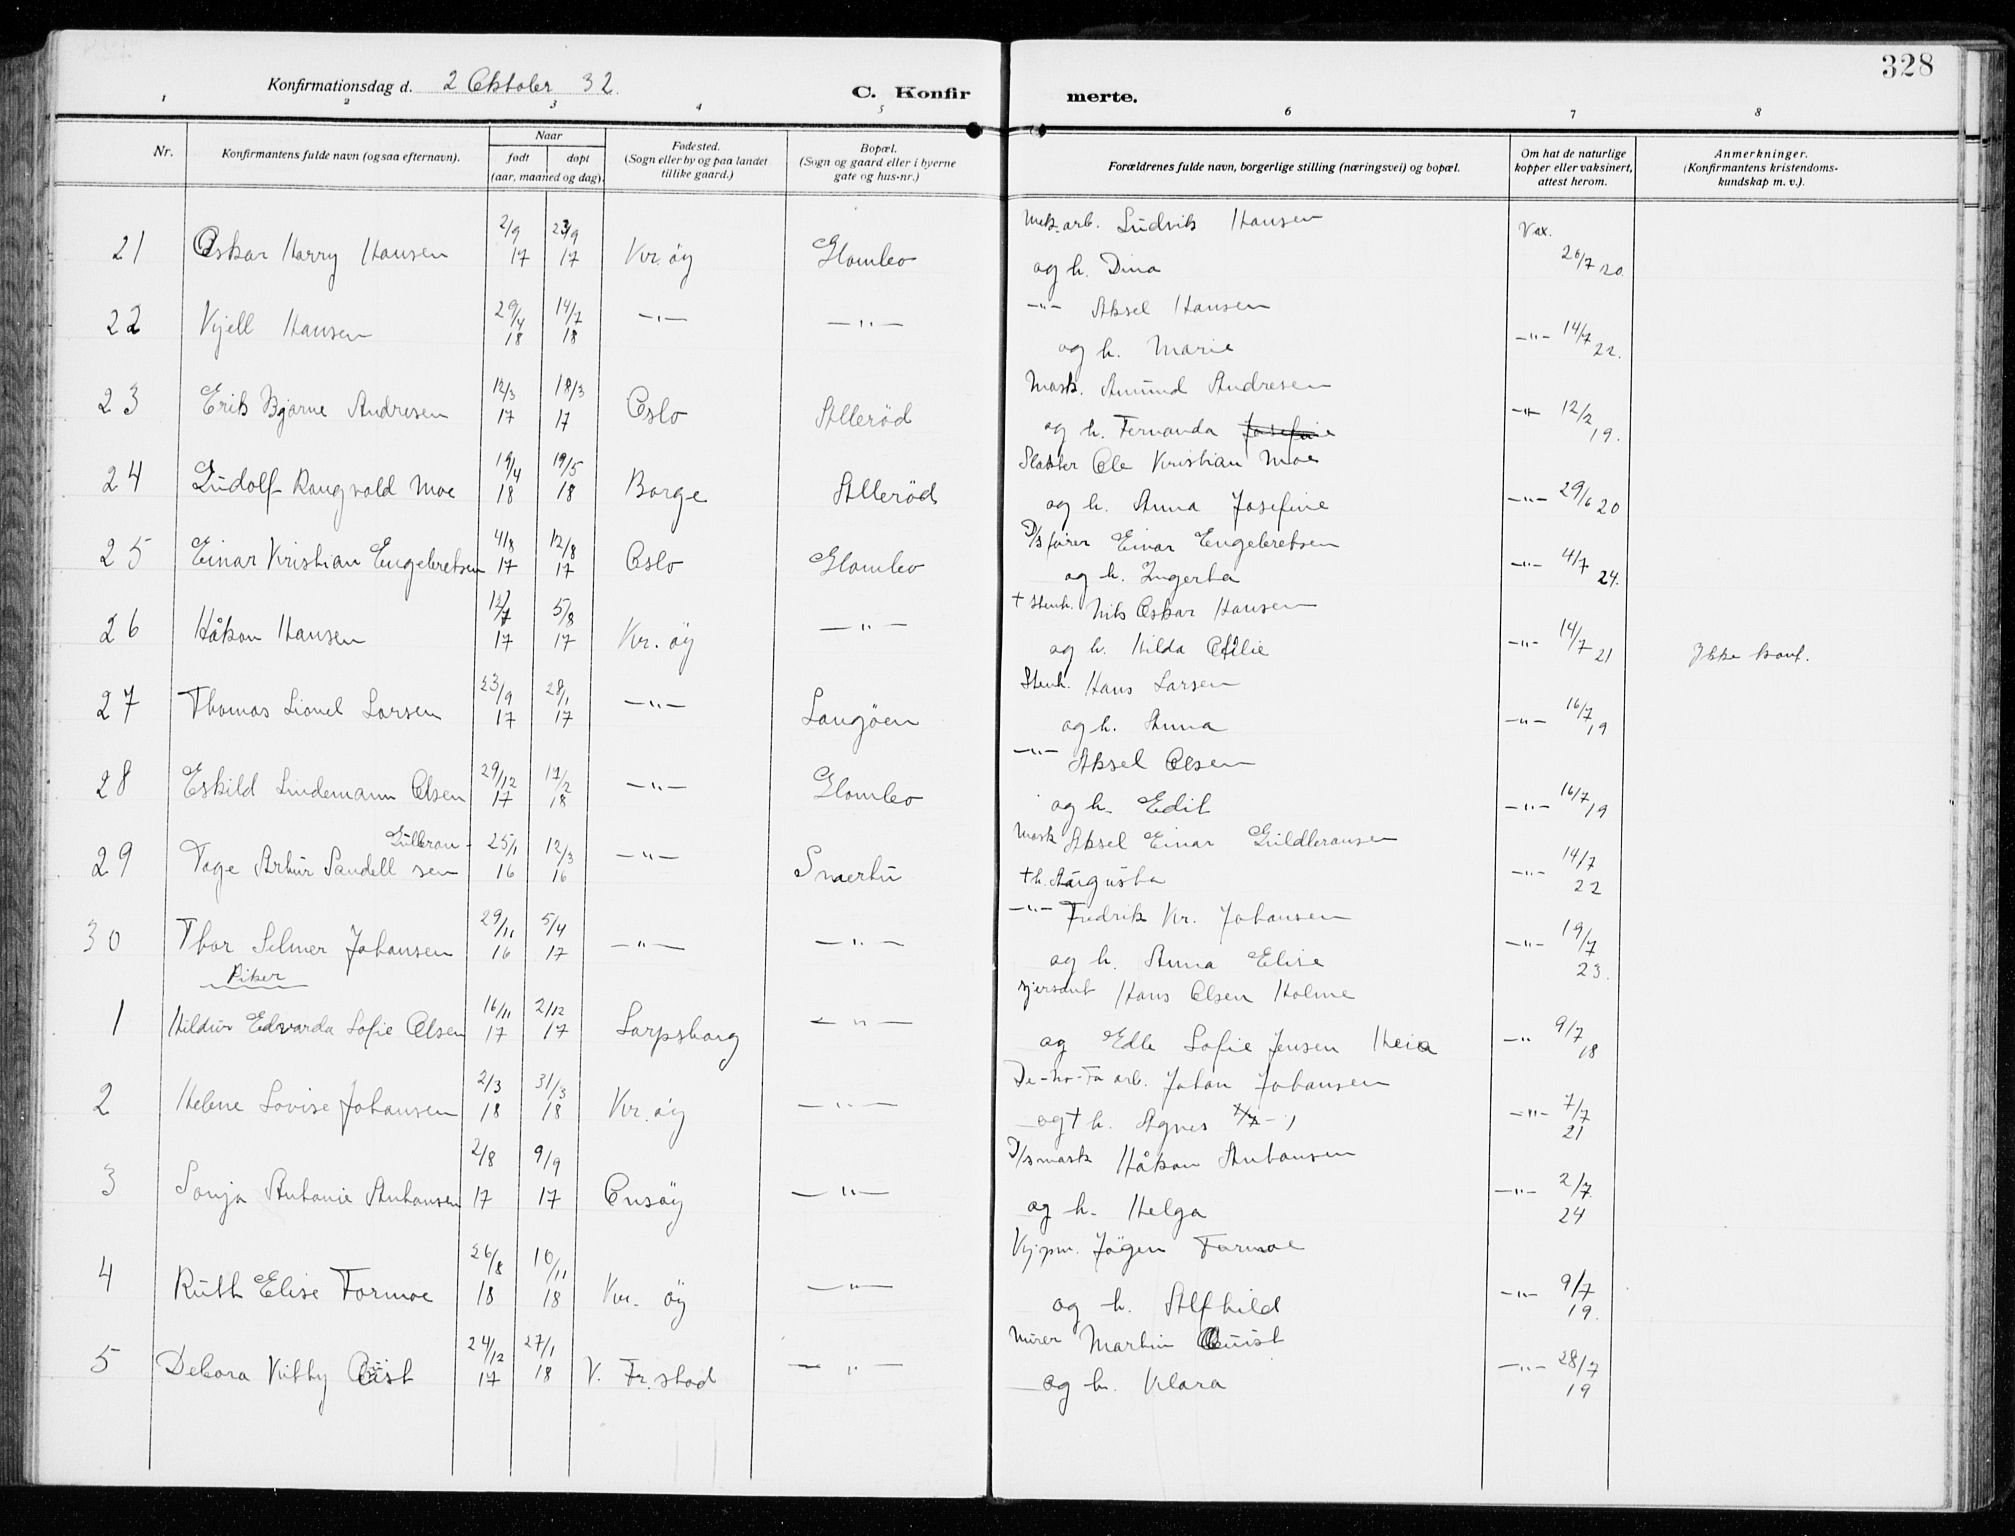 328
Konfirmationsdag d. 2 Oktober 32.
C. Konfir merte.
1 2 3 4 5 6 7 8
Nr.
Konfirmantens fulde navn (og saa efternavn).
Naar
født døpt
(aar, maaned og dag).
Fødested.
(Sogn eller by og paa landet
tillike gaard.)
Bopæl.
(Sogn og gaard eller i byerne
gate og hus-nr.)
Forældrenes fulde navn, borgerlige stilling (næringsvei) og bopæl.
Om hat de naturlige
kopper eller vaksinert,
attest herom.
Anmerkninger.
(Konfirmantens kristendoms-
kundskap m. v.).
21 Oskar Harry Hansen 2/9 17 23/9 17 Kr. öy Glombo Mek. arb. Ludvik Hansen
og h. Dina Vax. 26/7 20.
22 Kjell Hansen 29/4 18 14/7 18 -"- -"- -"- Aksel Hansen
og h. Marie -"- 14/7 22.
23 Erik Bjarne Andresen 12/3 17 18/3 17 Oslo Allerød Mask. Amund Andresen
og h. Fernanda Josefine -"- 12/2 19.
24 Ludolf Rangvald Moe 19/4 18 19/5 18 Borge Allerød Slakter Ole Kristian Moe
og h. Anna Josefine -"- 29/6 20
25 Einar Kristian Engebretsen 4/8 17 12/8 17 Oslo Glombo D/s fører Einar Engebretsen
og h. Ingerta -"- 4/7 24.
26 Håkon Hansen 12/7 17 5/8 17 Kr. öy -"- † Stenh. Nils Oskar Hansen
og h. Hilda Otilie -"- 14/7 21 Ikke konf.
27 Thomas Lionel Larsen 23/9 17 28/1 17 -"- Langöen Stenh. Hans Larsen
og h. Anna -"- 16/7 19
28 Eskild Lindemann Olsen 29/12 17 17/2 18 -"- Glombo -"- Aksel Olsen
og h. Edit -"- 16/7 19
29 Tage Artur Sandell Gulbran-
sen 25/1 16 12/3 16 -"- Smertu Mask Aksel Einar Guldbransen
† h. Augusta -"- 14/7 22
30 Thor Selmer Johansen 29/11 16 5/4 17 -"- -"- -"- Fredrik Kr. Johansen
og h. Anna Elise -"- 19/7 23.
Piker
1 Hildur Edvarda Sofie Olsen 16/11 17 2/12 17 Sarpsborg -"- sjersant Hans Olsen Holme
og Edle Sofie Jensen Heia -"- 9/7 18
2 Helene Lovise Johansen 2/3 18 31/3 18 Kr. öy -"- De-no-Fa arb. Johan Johansen
og † h. Agnes -"- 7/7 21
3 Sonja Antonie Antonsen 2/8 17 9/9 17 Onsöy -"- D/s mask Håkon Antonsen
og h. Helga -"- 2/7 24
4 Ruth Elise Formoe 26/8 18 10/11 18 Kr. öy -"- Kjøpm. Jögen Formoe
og h. Alfhild -"- 9/7 19.
5 Debora Kitty Quist 24/12 17 27/1 18 V. Fr.stad -"- Murer Martin Quist
og h. Klara -"- 28/7 19